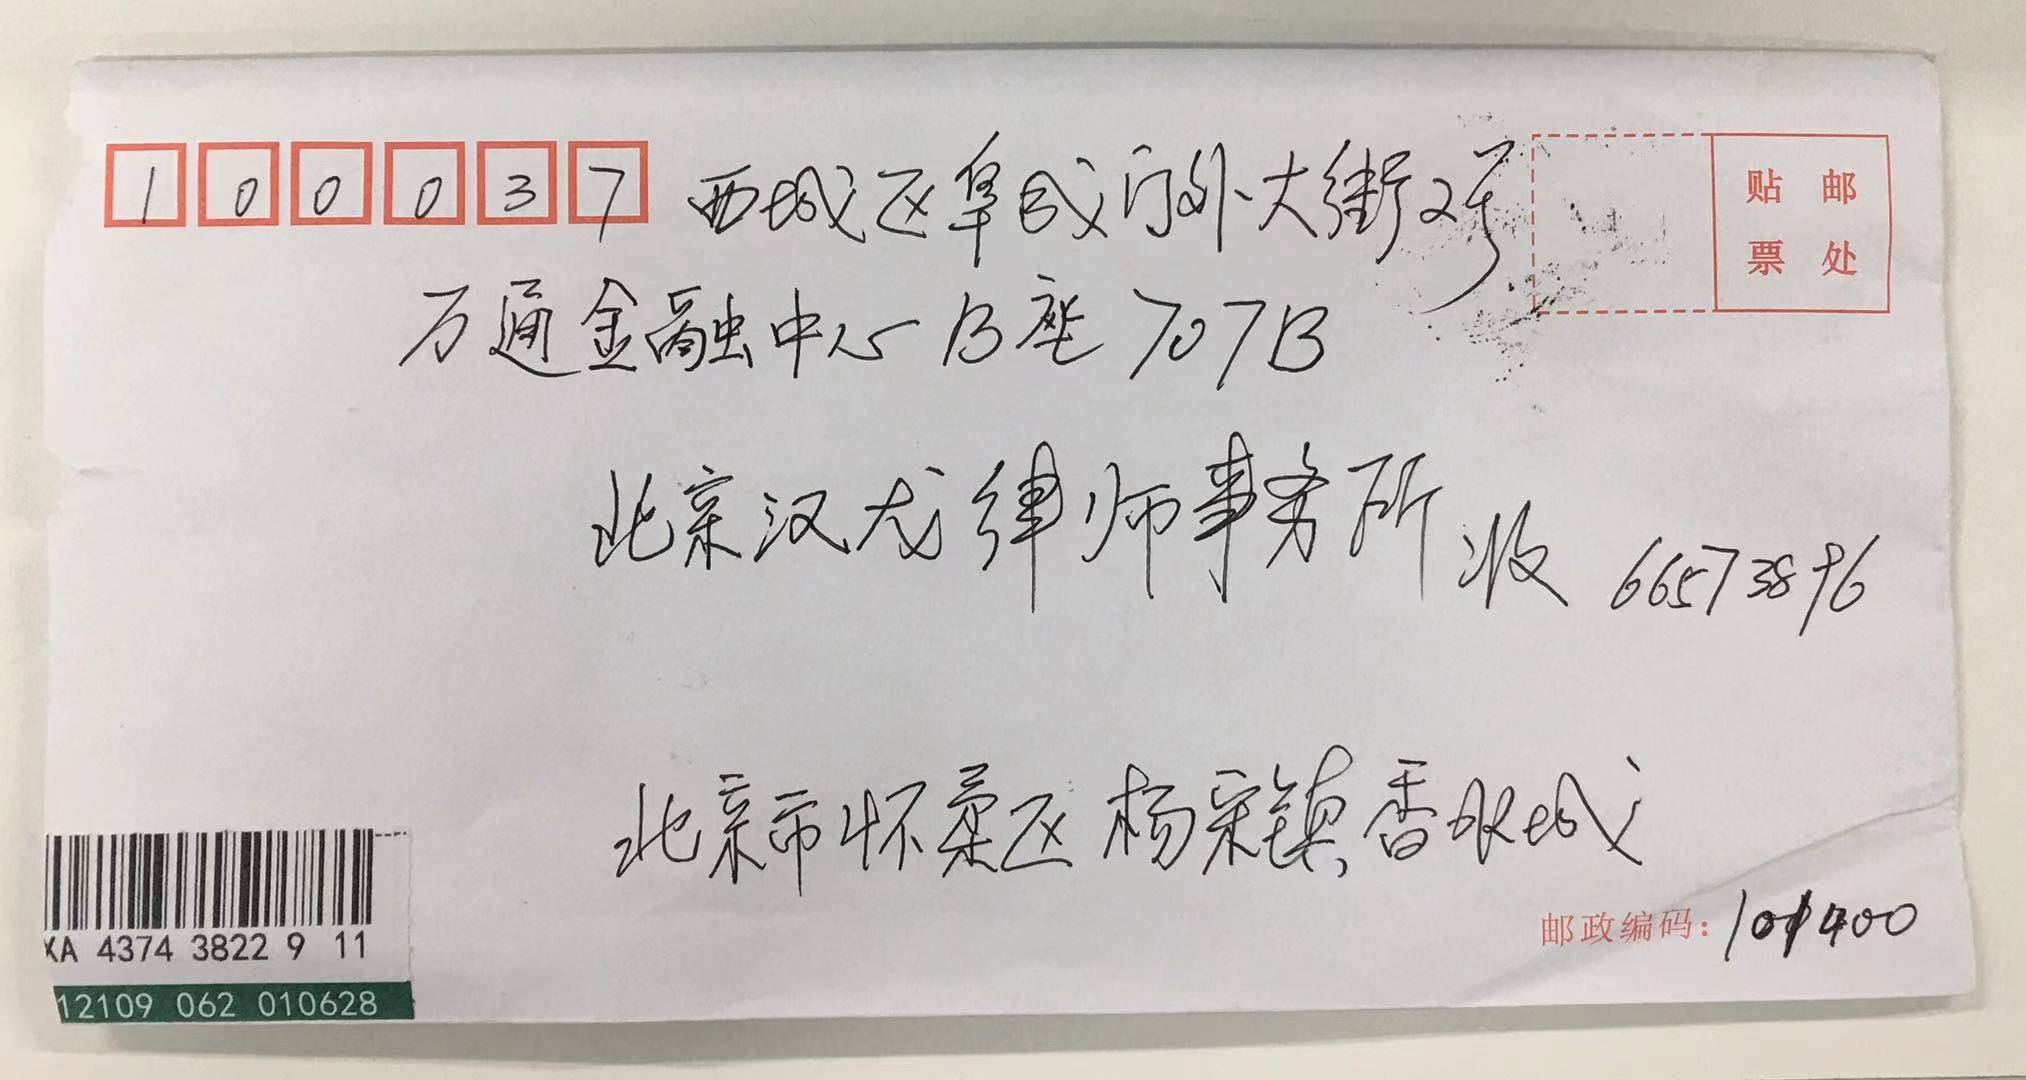 100037 西城区阜成门外大街2号
贴 邮
票 处
万通金融中心B座707B
北京汉龙律师事务所 收 66573896
北京市怀柔区杨宋镇香水城
邮政编码：101400
XA 4374 3822 9 11
12109 062 010628